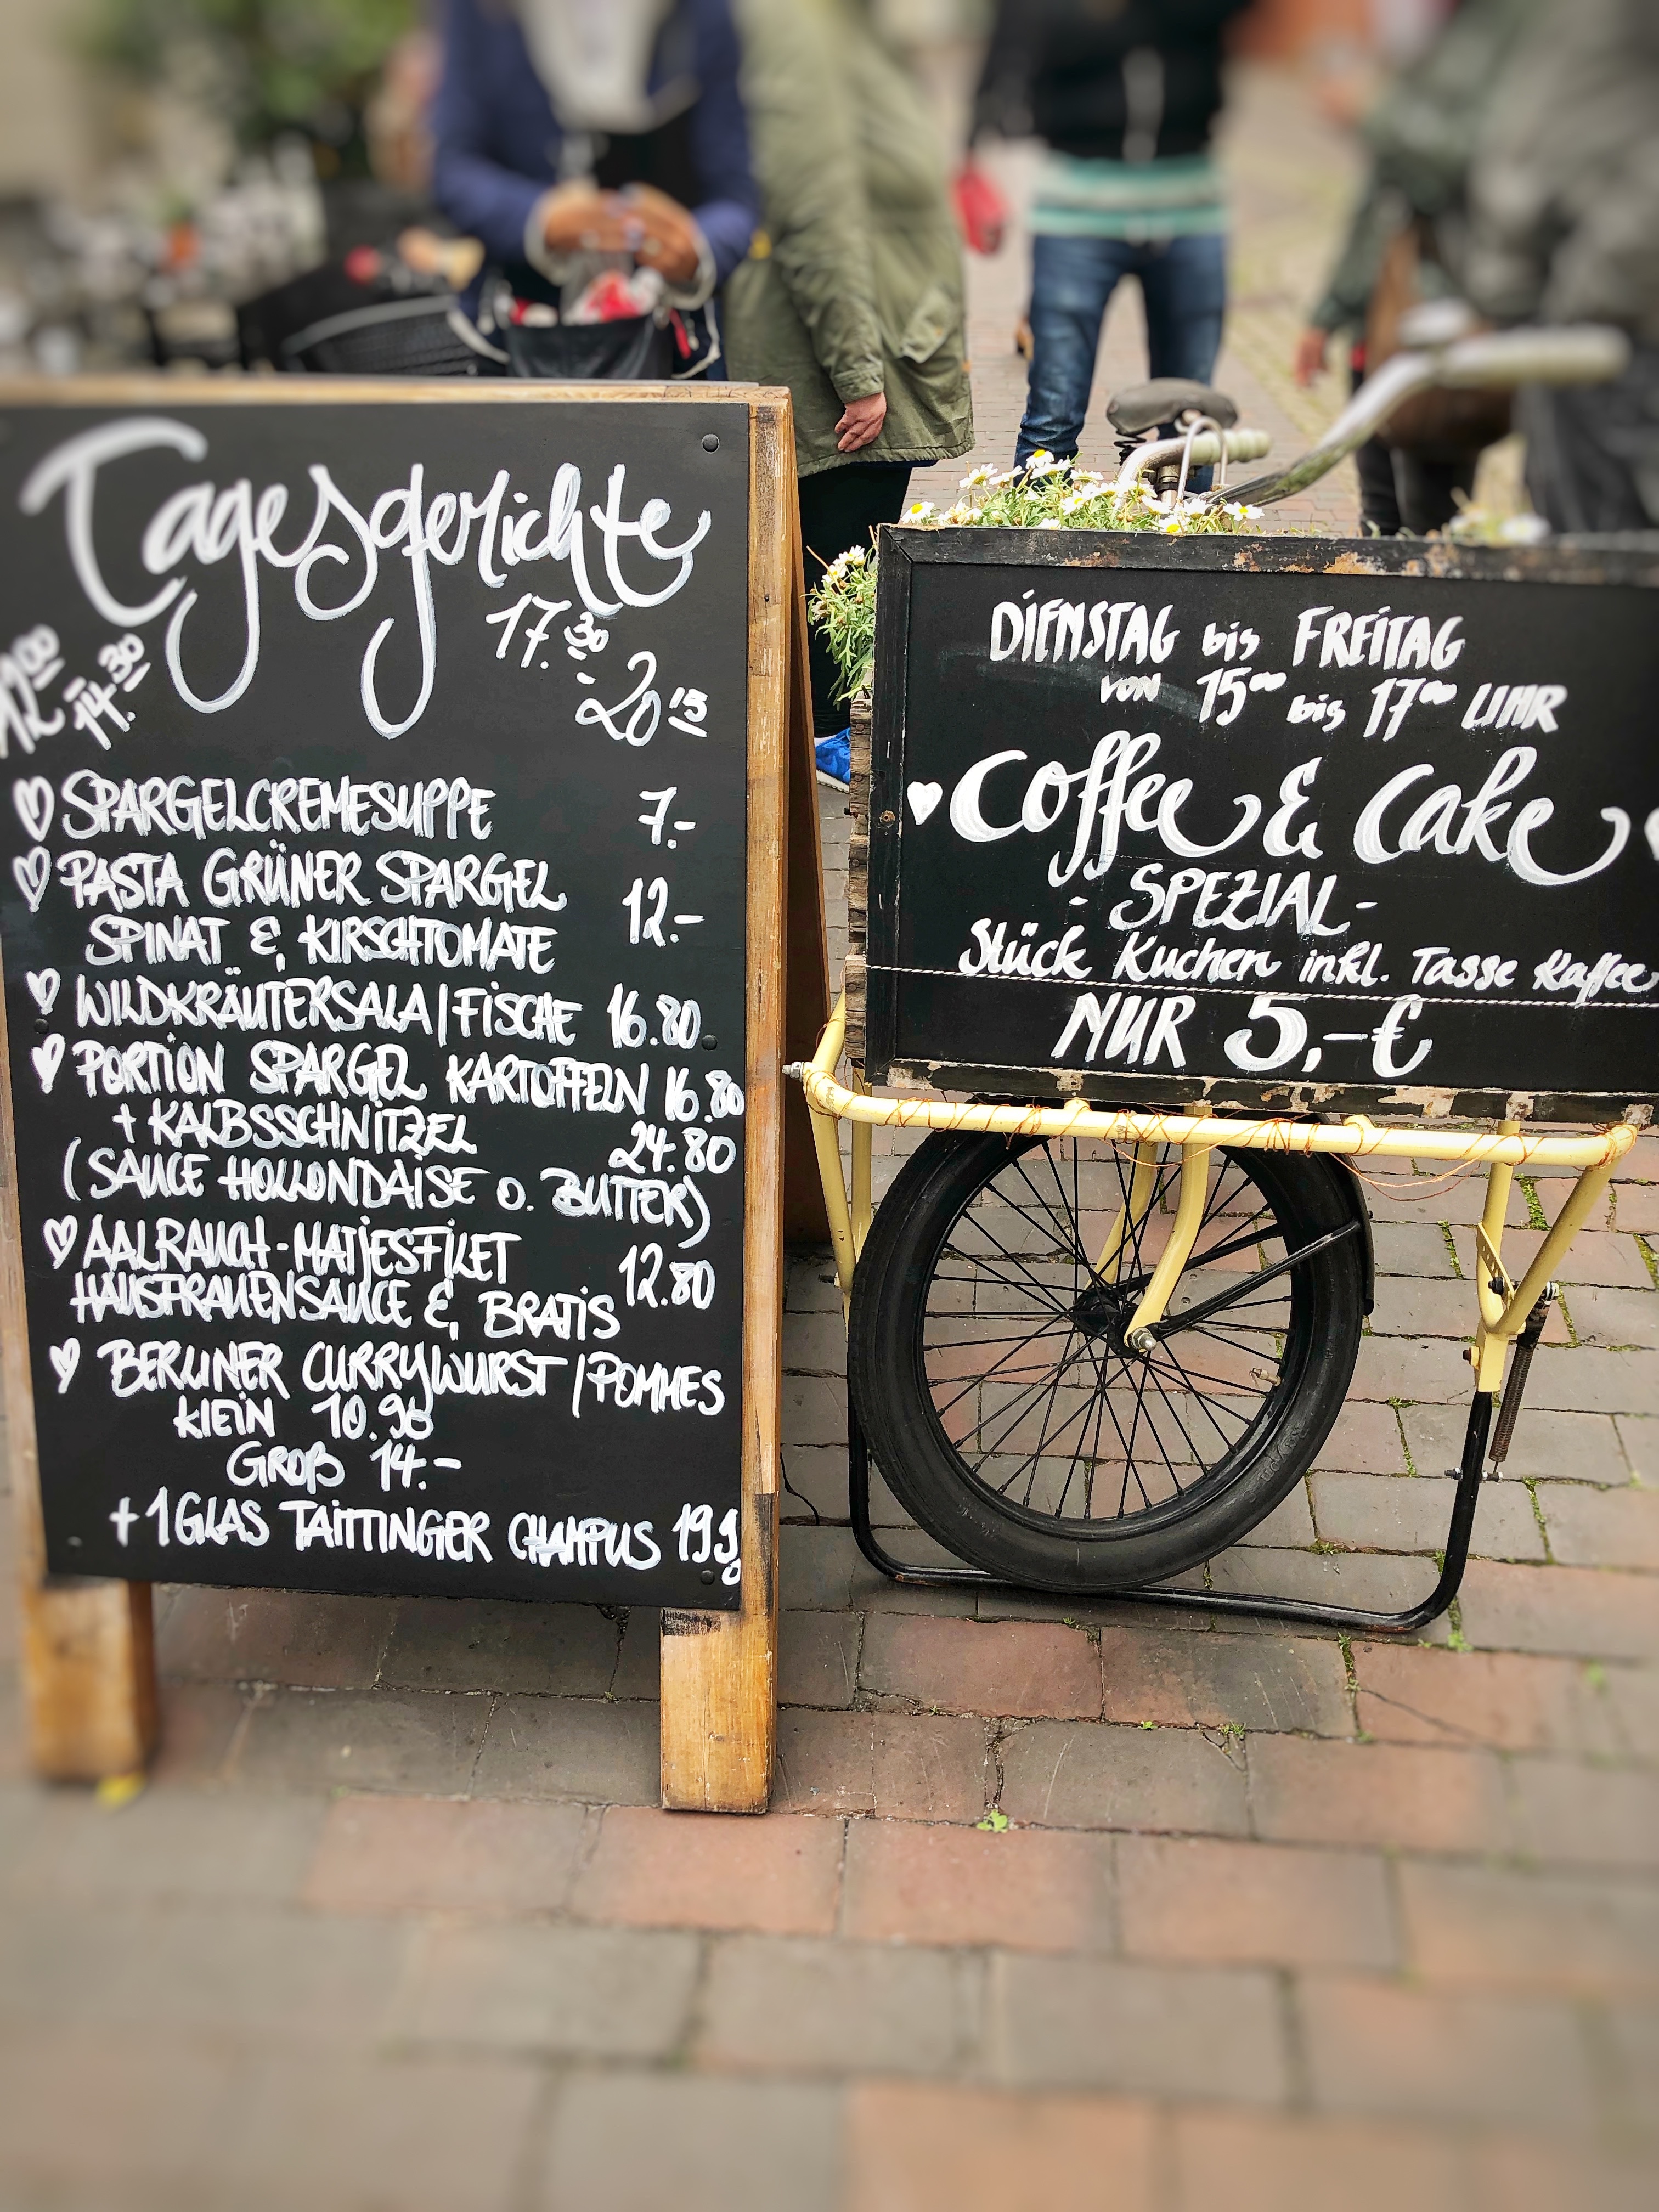 Tagesgerichte
12.00 - 14.30
17.30 - 20.15
SPARGELCREMESUPPE 7.-
PASTA GRÜNER SPARGEL
SPINAT & KIRSCHTOMATE 12.-
WILDKRÄUTERSALA/FISCHE 16.80
PORTION SPARGEL KARTOFFELN 16.80
+ KALBSSCHNITZEL 24.80
(SAUCE HOLLONDAISE o. BUTTER)
AALRAUCH-MATJESFILET
HAUSFRAUENSAUCE & BRATIS 12.80
BERLINER CURRYWURST/POMMES
KLEIN 10.90
GROß 14.-
+ 1 GLAS TAITTINGER CHAMPUS
DIENSTAG bis FREITAG
von 15.00 bis 17.00 UHR
Coffee & Cake
- SPEZIAL -
Stück Kuchen inkl. Tasse Kaffee
NUR 5,-€